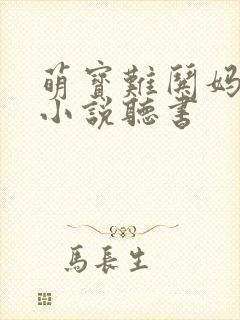 萌寶難鬪媽
小說聽書
馬長生